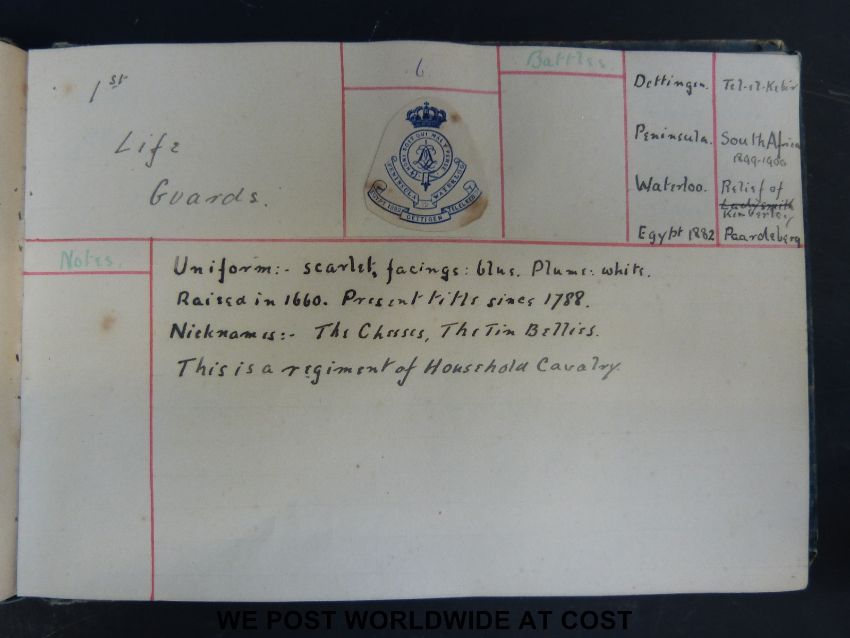 1st
Life
Guards.
6.
HONI SOIT QUI MAL Y PENSE
PENINSULA WATERLOO
EGYPT 1882 DETTINGEN TEL-EL-KEBIR
Battles.
Dettingen.
Peninsula.
Waterloo.
Egypt 1882
Tel-el-Kebir
South Africa
1899-1900
Relief of
Ladysmith
Kimberley
Paardeberg
Notes.
Uniform:- scarlet, facings: blue. Plume: white.
Raised in 1660. Present title since 1788.
Nicknames:- The Cheeses, The Tin Bellies.
This is a regiment of Household Cavalry.
WE POST WORLDWIDE AT COST